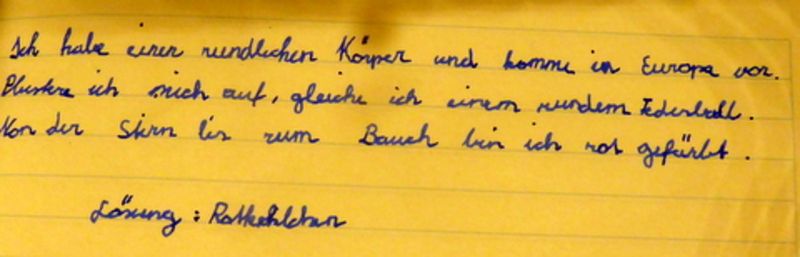 Ich habe einen rundlichen Körper und komme in Europa vor.
Plustere ich mich auf, gleiche ich einem rundem Federball.
Von der Stirn bis zum Bauch bin ich rot gefärbt.
Lösung: Rotkehlchen